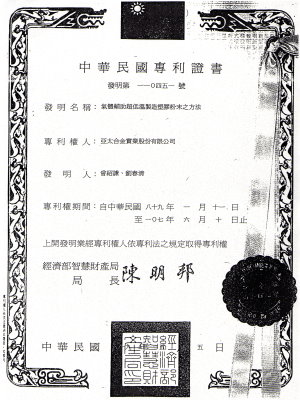 中華民國專利證書
發明第 一一〇四五一 號
發明名稱：氣體輔助超低溫製造塑膠粉末之方法
專利權人：亞太合金實業股份有限公司
發明人：曾紹謙、劉春
專利權期間：自中華民國 八十九年 一月 十一日
至 一〇七年 六月 十日止
上開發明業經專利權人依專利法之規定取得專利權
經濟部智慧財產局
局長
陳明邦
中華民國 五 日